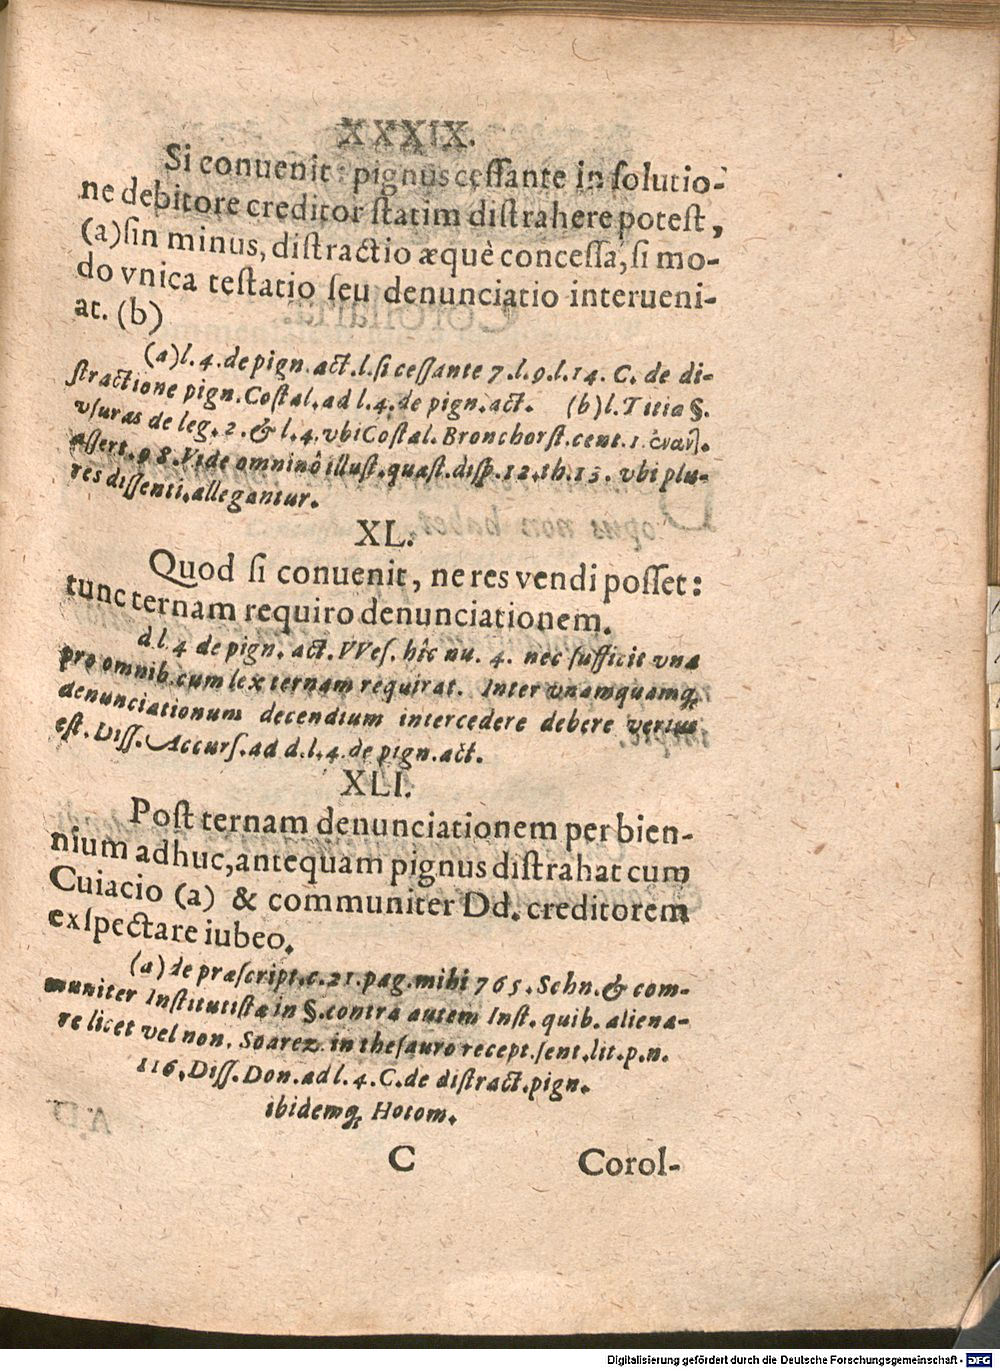 XXXIX.
Si conuenit : pignus ceſſante in ſolutio-
ne debitore creditor ſtatim diſtrahere poteſt,
(a) ſin minus, diſtractio æquè conceſſa, ſi mo-
do vnica teſtatio ſeu denunciatio interueni-
at. (b)
(a) l. 4. de pign. act. l. ſi ceſſante 7. l. 9. l. 14. C. de di-
ſtractione pign. Coſtal. ad l. 4. de pign. act. (b) l. Titia §.
vſuras de leg. 2. & l. 4. vbi Coſtal. Bronchorſt. cent. 1.
aſſert. 98. Vide omninô illuſt. quæſt. diſp. 12. th. 13. vbi plu-
res diſſenti. allegantur.
XL.
Quod ſi conuenit, ne res vendi poſſet:
tunc ternam requiro denunciationem.
d. l. 4 de pign. act. VVeſ. hîc nu. 4. nec ſufficit vna
pro omnib. cum lex ternam requirat. Inter vnamquamq;
denunciationum decendium intercedere debere verius
eſt. Diſſ. Accurſ. ad d. l. 4. de pign. act.
XLI.
Poſt ternam denunciationem per bien-
nium adhuc, antequam pignus diſtrahat cum
Cuiacio (a) & communiter Dd. creditorem
exſpectare iubeo.
(a) de præſcript. c. 21. pag. mihi 765. Schn. & com-
muniter Inſtitutiſtæ in §. contra autem Inſt. quib. aliena-
re licet vel non. Soarez. in theſauro recept. ſent. lit. p. n.
116. Diſſ. Don. ad l. 4. C. de diſtract. pign.
ibidemq; Hotom.
C Corol-
Digitalisierung gefördert durch die Deutsche Forschungsgemeinschaft - DFG